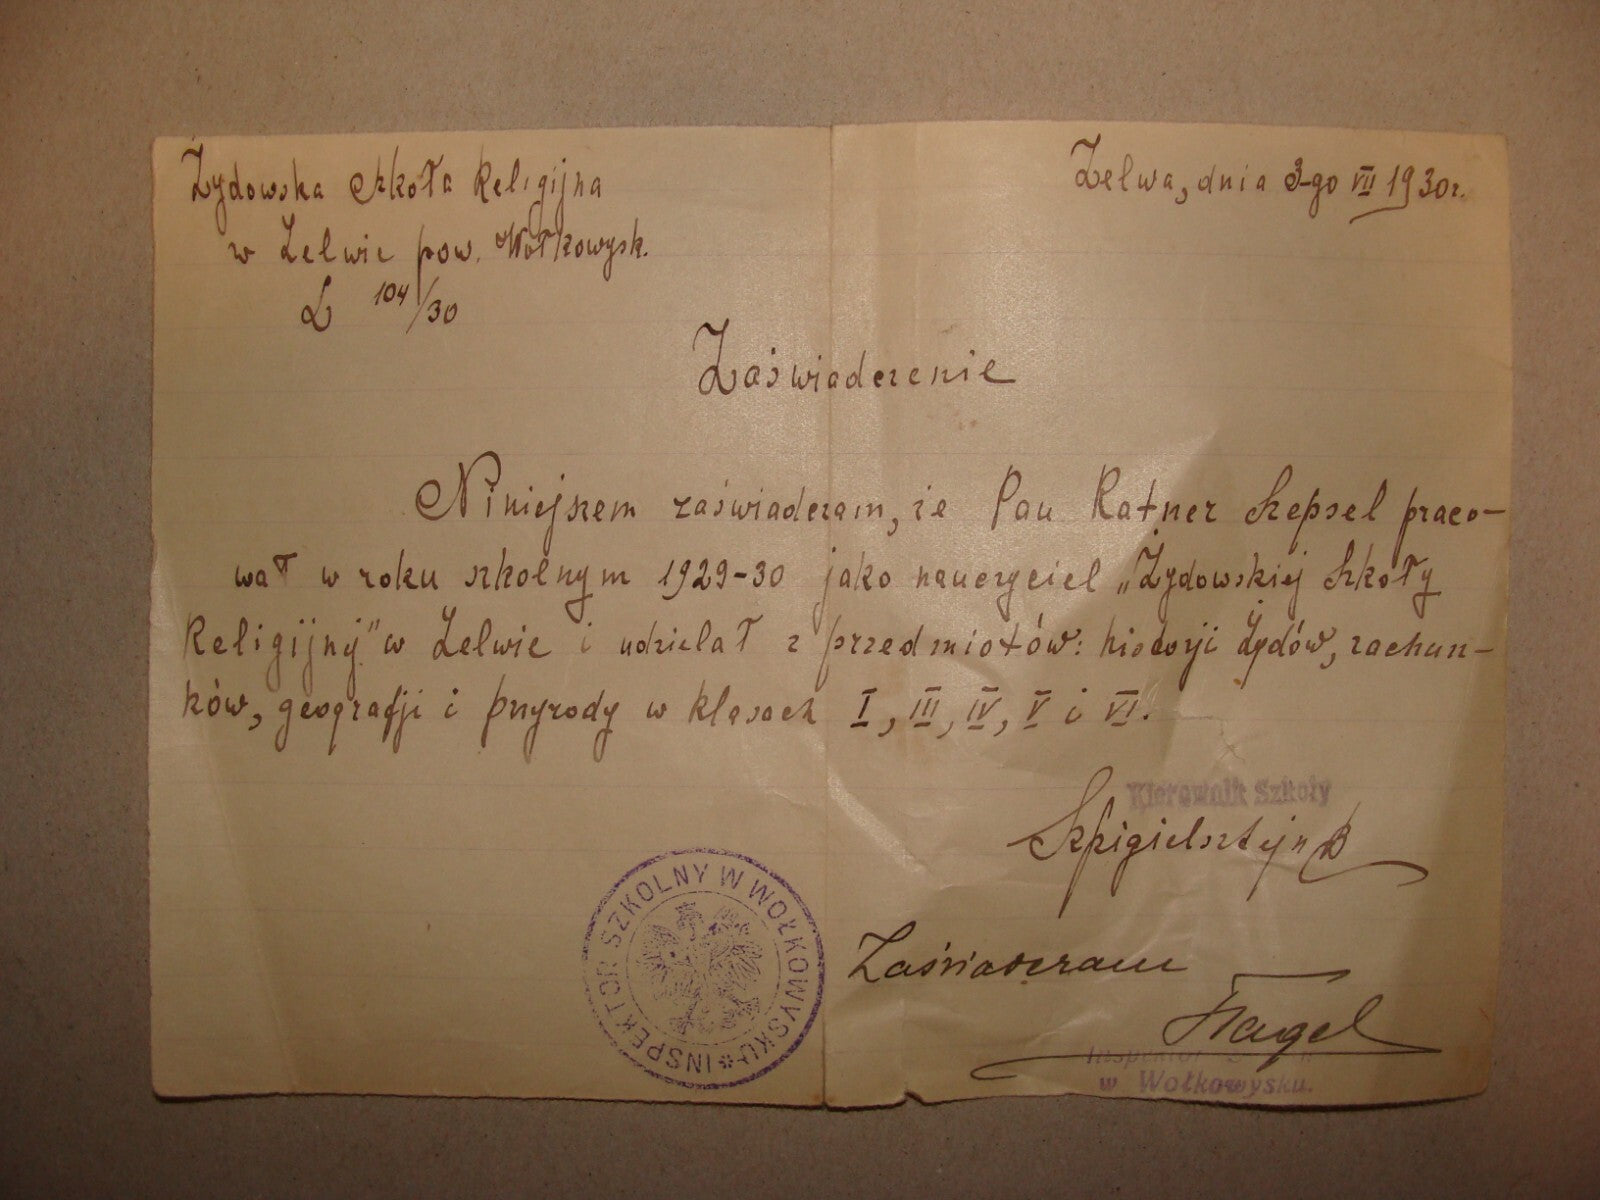 Żydowska Szkoła Religijna
w Zelwie pow. Wołkowysk.
L 104/30
Zelwa, dnia 3-go VII 1930 r.
Zaświadczenie
Niniejszem zaświadczam, że Pan Ratner Szepsel praco-
wał w roku szkolnym 1929-30 jako nauczyciel „Żydowskiej Szkoły
Religijnej" w Zelwie i udzielał z przedmiotów: historji Żydów, rachun-
ków, geografji i przyrody w klasach I, III, IV, V i VI.
Kierownik Szkoły
Szpigielsztejn B
INSPEKTOR SZKOLNY W WOŁKOWYSKU
Zaświadczam
Inspektor
w Wołkowysku.